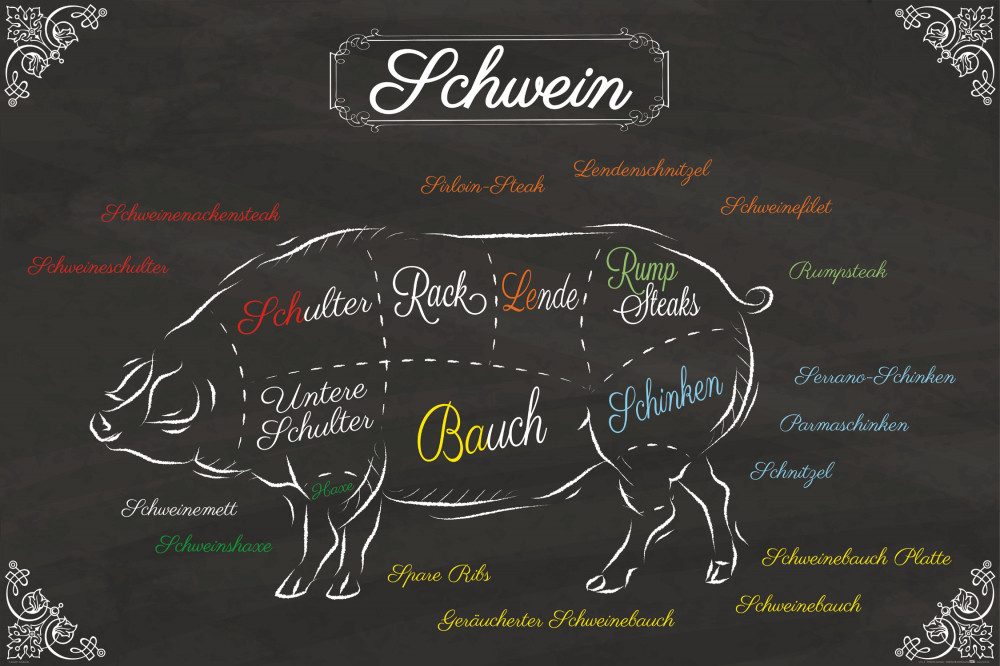 Schwein
Lendenschnitzel
Sirloin-Steak
Schweinefilet
Schweinenackensteak
Schweineschulter
Rumpsteak
Schulter
Rack
Lende
Rump
Steaks
Untere
Schulter
Bauch
Schinken
Serrano-Schinken
Parmaschinken
Schnitzel
Haxe
Schweinemett
Schweinshaxe
Spare Ribs
Geräucherter Schweinebauch
Schweinebauch Platte
Schweinebauch